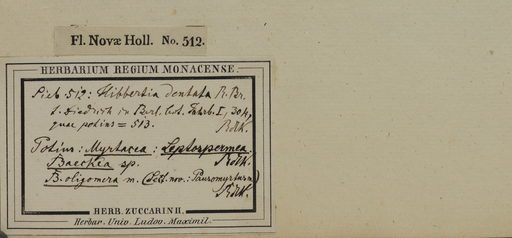 Fl. Novæ Holl. No. 512.
HERBARIUM REGIUM MONACENSE.
Sieb 512: Hibbertia dentata R. Br.
t. Diedrich in Berl. bot. Jahrb. I, 304,
quae potius = 513. Rdlk.
Potius: Myrtacea: Leptosperma.
Baeckea sp. Rdlk.
B. oligomera m. (Sect. nov.: Pauromyrtus m)
Rdlk.
HERB. ZUCCARINII.
Herbar. Univ. Ludov. Maximil.